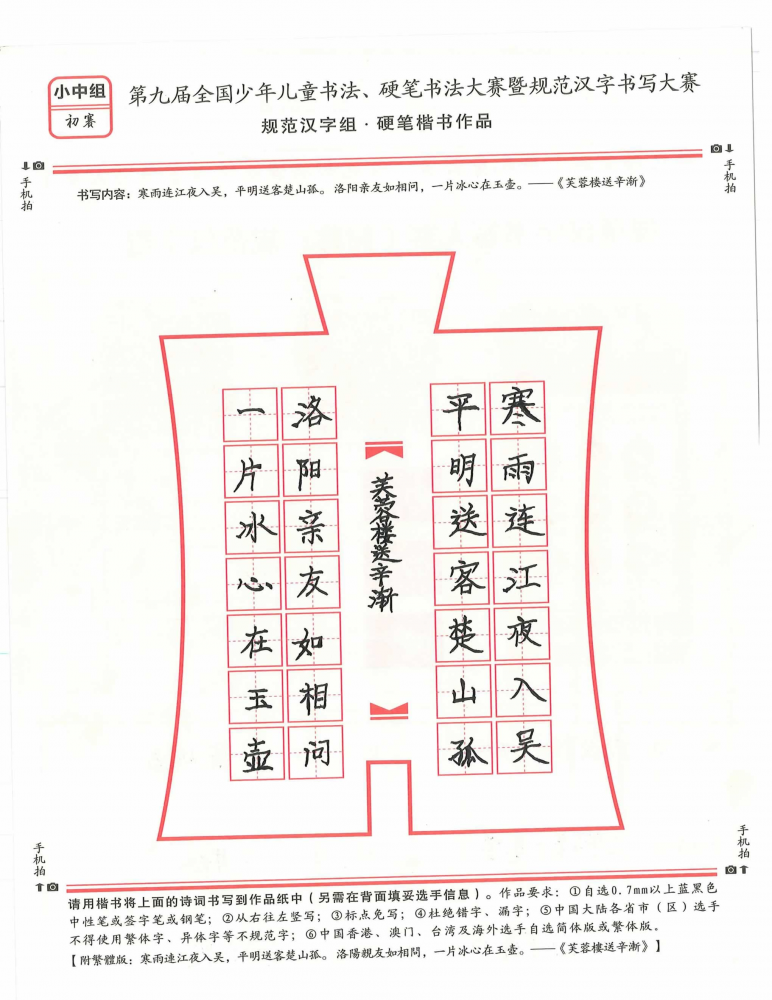 小中组
初赛
第九届全国少年儿童书法、硬笔书法大赛暨规范汉字书写大赛
规范汉字组·硬笔楷书作品
手机拍
手机拍
书写内容：寒雨连江夜入吴，平明送客楚山孤。洛阳亲友如相问，一片冰心在玉壶。——《芙蓉楼送辛渐》
寒雨连江夜入吴
平明送客楚山孤
芙蓉楼送辛渐
洛阳亲友如相问
一片冰心在玉壶
手机拍
手机拍
请用楷书将上面的诗词书写到作品纸中（另需在背面填妥选手信息）。作品要求：①自选0.7mm以上蓝黑色
中性笔或签字笔或钢笔；②从右往左竖写；③标点免写；④杜绝错字、漏字；⑤中国大陆各省市（区）选手
不得使用繁体字、异体字等不规范字；⑥中国香港、澳门、台湾及海外选手自选简体版或繁体版。
【附繁體版：寒雨連江夜入吴，平明送客楚山孤。洛陽親友如相問，一片冰心在玉壶。——《芙蓉楼送辛渐》】